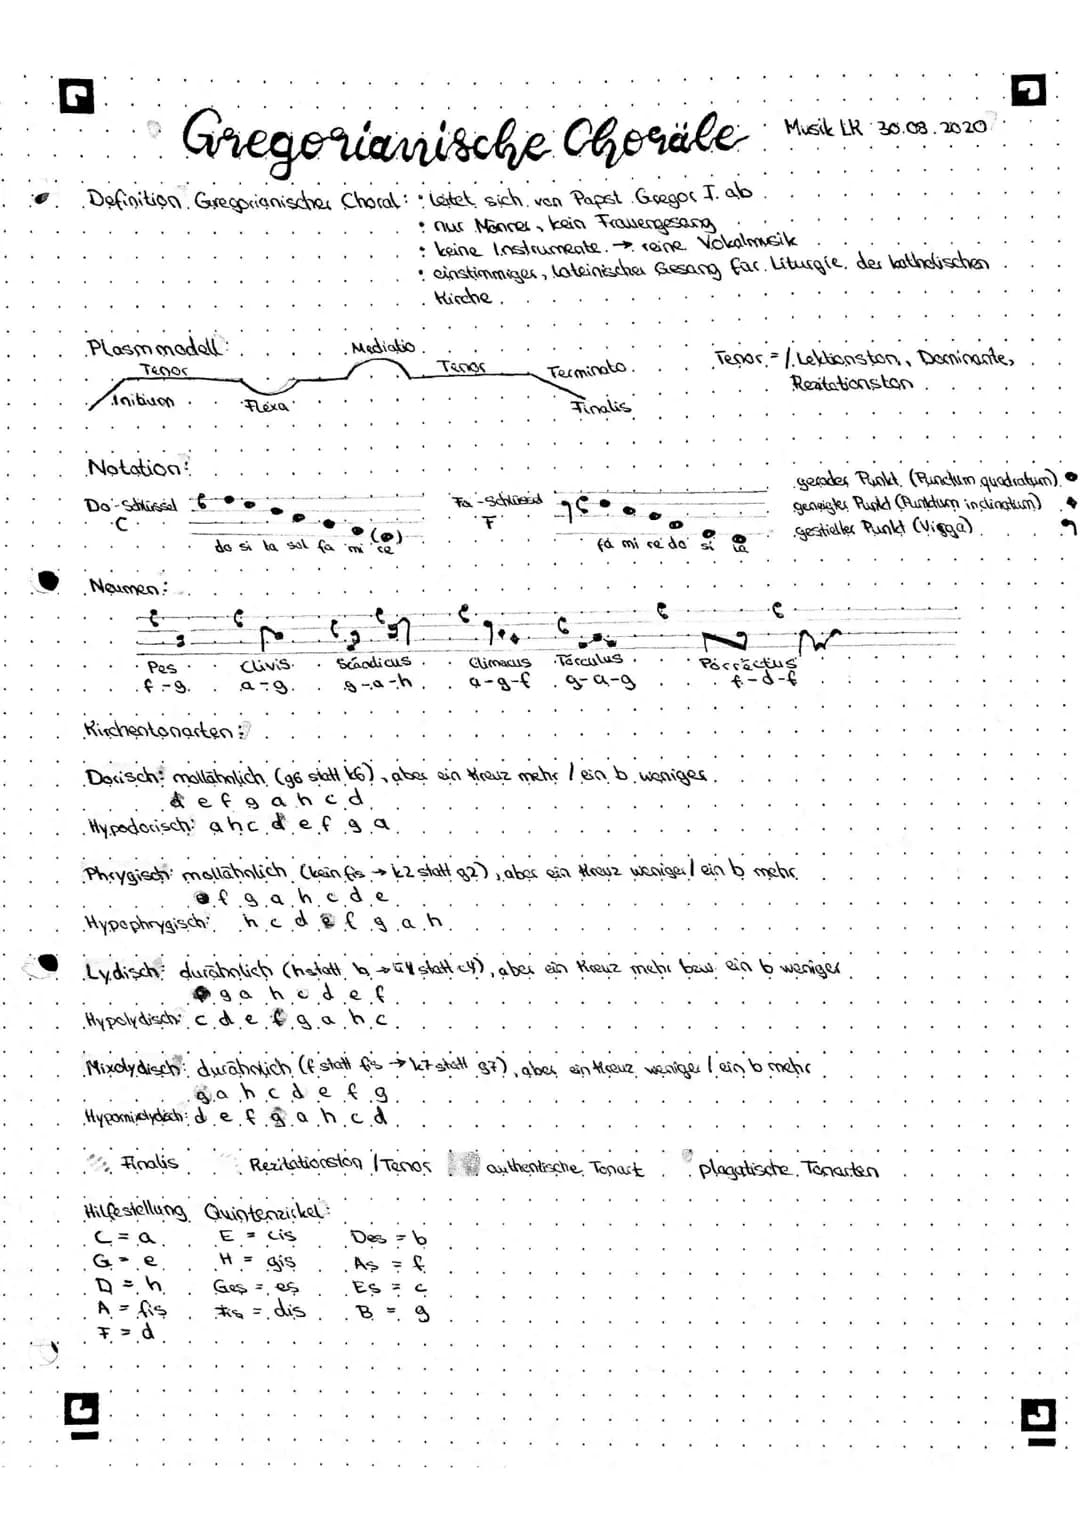 Gregorianische Choräle
Musik LK 30.08.2020
Definition Gregorianischer Choral: • leitet sich von Papst Gregor I. ab
• nur Männer, kein Frauengesang
• keine Instrumente → reine Vokalmusik
• einstimmiger, lateinischer Gesang für Liturgie der katholischen
Kirche
Plasmmodell:
Mediatio
Tenor
Tenor
Terminato
Initium
Flexa
Finalis
Tenor = / Lektionston, Dominante,
Rezitationston
Notation:
Do-Schlüssel
C
do si la sol fa mi re
Fa-Schlüssel
F
fa mi re do si la
gerader Punkt (Punctum quadratum)
geneigter Punkt (Punktum inclinatum)
gestielter Punkt (Virga)
Neumen:
Pes Clivis Scandicus Climacus Torculus Porrectus
f-g a-g g-a-h a-g-f g-a-g f-d-f
Kirchentonarten:
Dorisch: mollähnlich (g6 statt k6), aber ein Kreuz mehr / ein b weniger
d e f g a h c d
Hypodorisch: a h c d e f g a
Phrygisch: mollähnlich (kein fis → k2 statt g2), aber ein Kreuz weniger / ein b mehr
e f g a h c d e
Hypophrygisch: h c d e f g a h
Lydisch: durähnlich (h statt b → ü4 statt r4), aber ein Kreuz mehr bzw. ein b weniger
f g a h c d e f
Hypolydisch: c d e f g a h c
Mixolydisch: durähnlich (f statt fis → k7 statt g7), aber ein Kreuz weniger / ein b mehr
g a h c d e f g
Hypomixolydisch: d e f g a h c d
Finalis Rezitationston / Tenor authentische Tonart plagatische Tonarten
Hilfestellung Quintenzirkel:
C = a E = cis Des = b
G = e H = gis As = f
D = h Ges = es Es = c
A = fis Fis = dis B = g
F = d